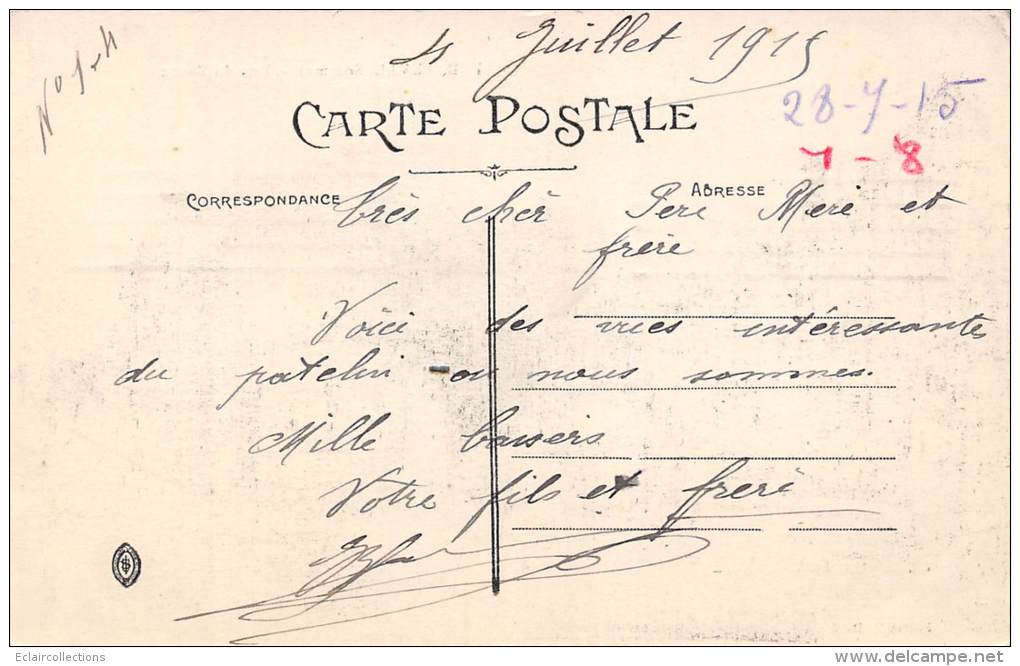 No 1-4
4 Juillet 1915
28-7-15
CARTE POSTALE
7-8
CORRESPONDANCE
ADRESSE
très cher Père Mere et
frère
Voici des vues intéressantes
du patelin ou nous sommes.
Mille baisers
Votre fils et frère
Eclaircollections
www.delcampe.net